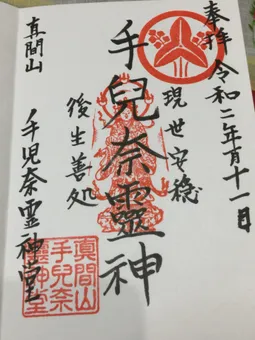 奉拝 令和二年 月十一日
現世安穏
手兒奈靈神
後生善処
真間山
手児奈霊神堂
真間山
手兒奈
靈神堂